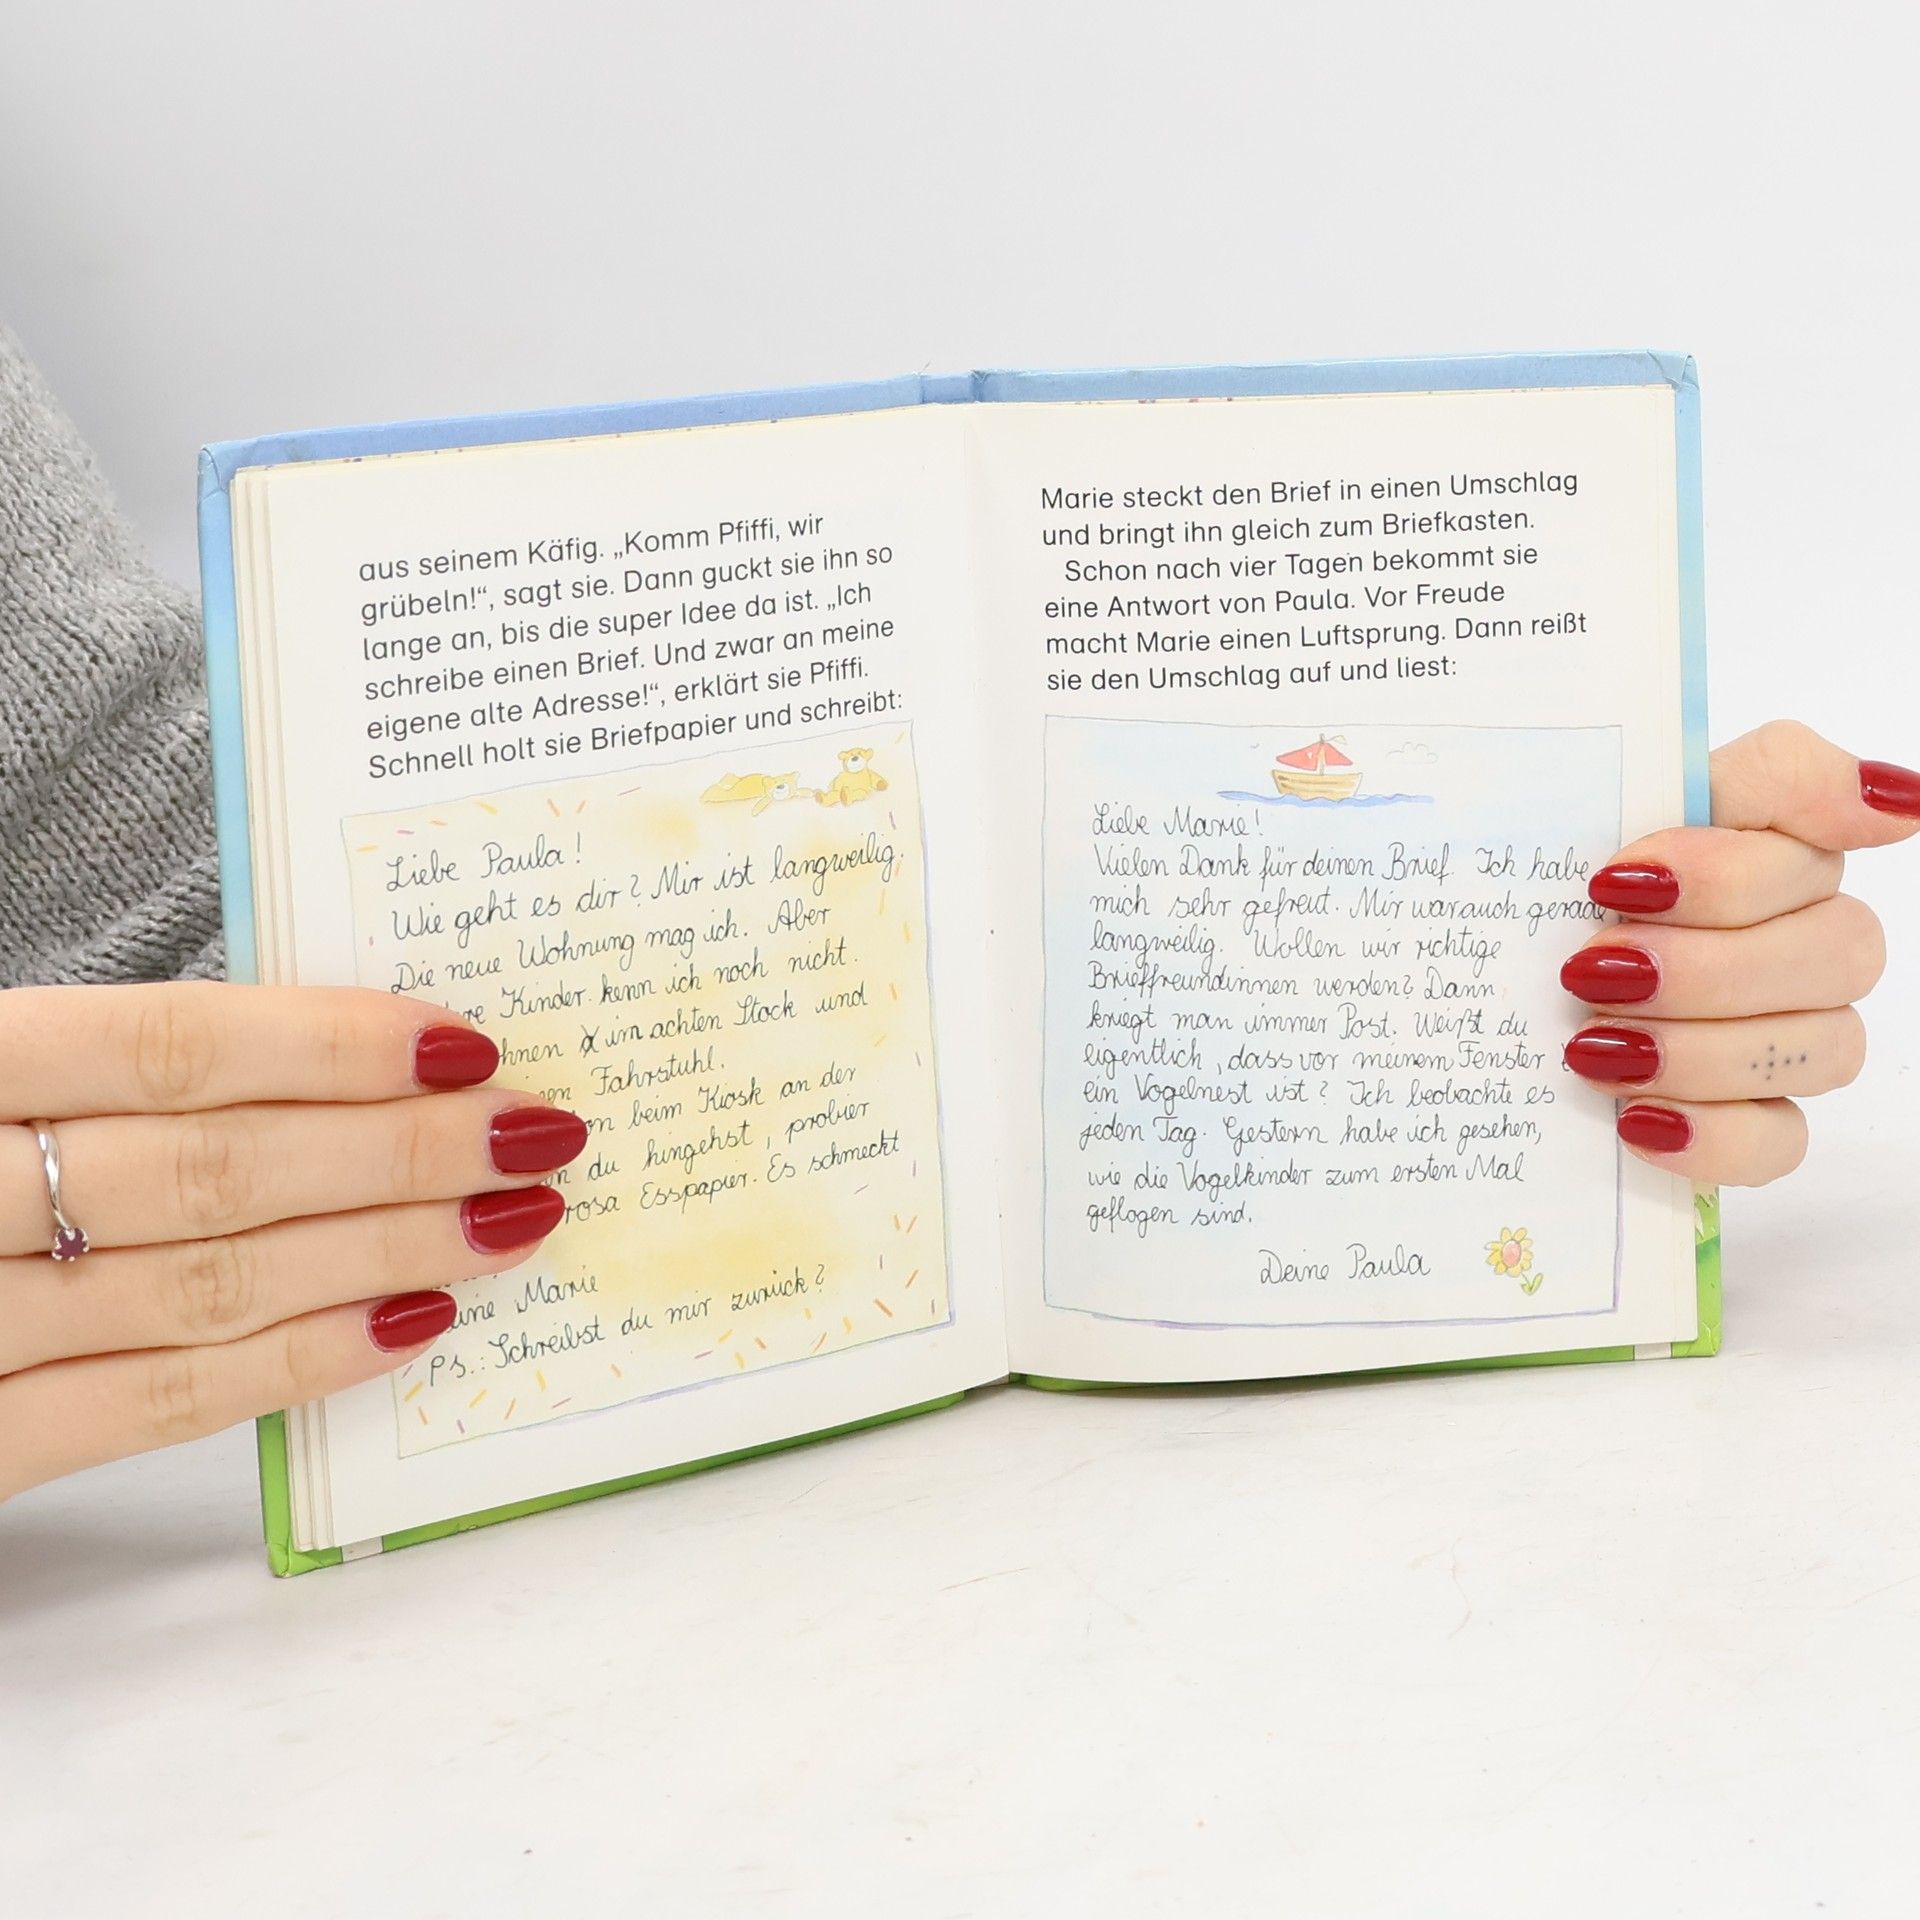 aus seinem Käfig. „Komm Pfiffi, wir
grübeln!“, sagt sie. Dann guckt sie ihn so
lange an, bis die super Idee da ist. „Ich
schreibe einen Brief. Und zwar an meine
eigene alte Adresse!“, erklärt sie Pfiffi.
Schnell holt sie Briefpapier und schreibt:
Liebe Paula!
Wie geht es dir? Mir ist langweilig.
Die neue Wohnung mag ich. Aber
Kinder kenn ich noch nicht.
im achten Stock und
Fahrstuhl.
beim Kiosk an der
du hingehst, probier
rosa Esspapier. Es schmeckt
Marie
Ps.: Schreibst du mir zurück?
Marie steckt den Brief in einen Umschlag
und bringt ihn gleich zum Briefkasten.
Schon nach vier Tagen bekommt sie
eine Antwort von Paula. Vor Freude
macht Marie einen Luftsprung. Dann reißt
sie den Umschlag auf und liest:
Liebe Marie!
Vielen Dank für deinen Brief. Ich habe
mich sehr gefreut. Mir war auch gerade
langweilig. Wollen wir richtige
Brieffreundinnen werden? Dann
kriegt man immer Post. Weißt du
eigentlich, dass vor meinem Fenster
ein Vogelnest ist? Ich beobachte es
jeden Tag. Gestern habe ich gesehen,
wie die Vogelkinder zum ersten Mal
geflogen sind.
Deine Paula